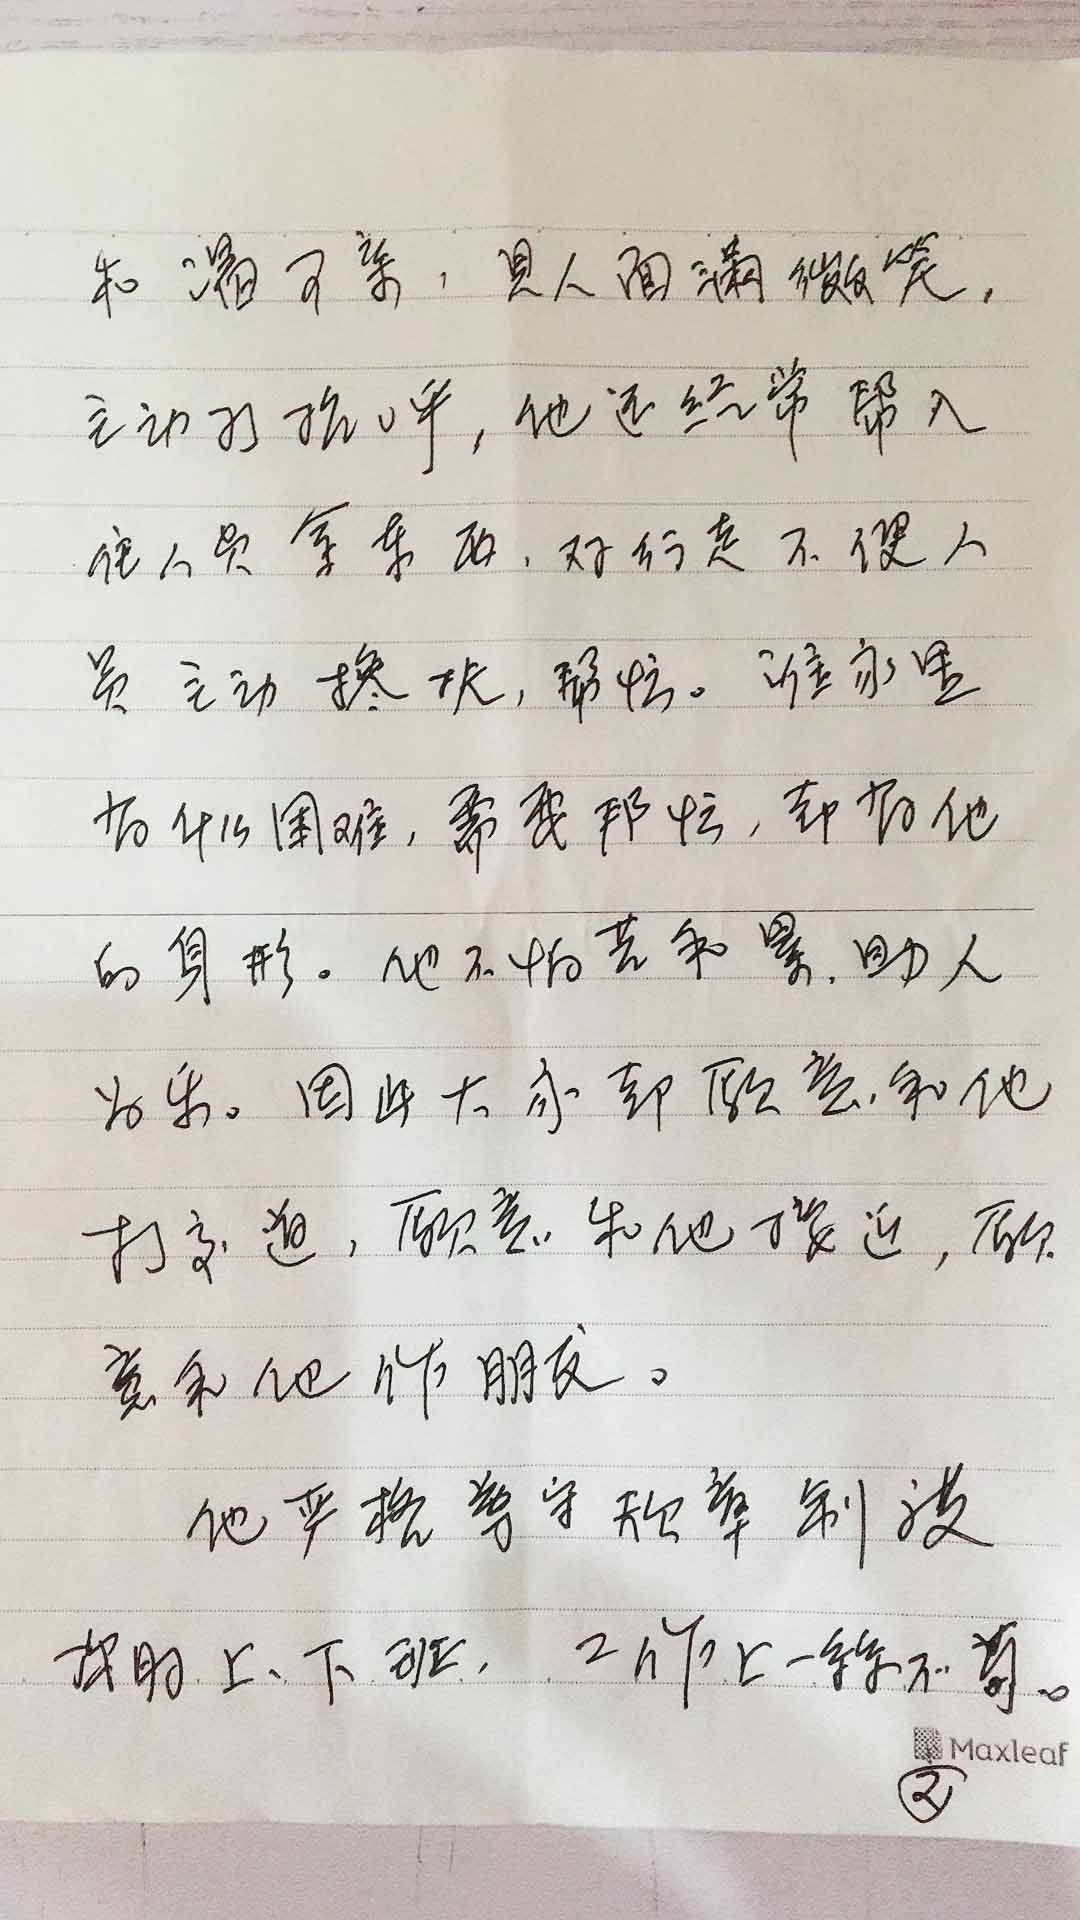 和蔼可亲，见人面满微笑，
主动打招呼，他还经常帮入
住人员拿东西，对行走不便人
员主动搀扶，帮忙。谁家里
有什么困难，需要帮忙，都有他
的身形。他不怕苦和累，助人
为乐。因此大家都愿意和他
打交道，愿意和他接近，愿
意和他作朋友。
他严格遵守规章制度
按时上、下班，工作上一丝不苟。
Maxleaf
②